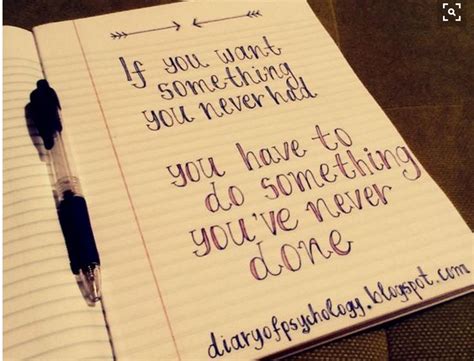 If you want
something
you never had
you have to
do something
you've never
done
diaryofpsychology.blogspot.com